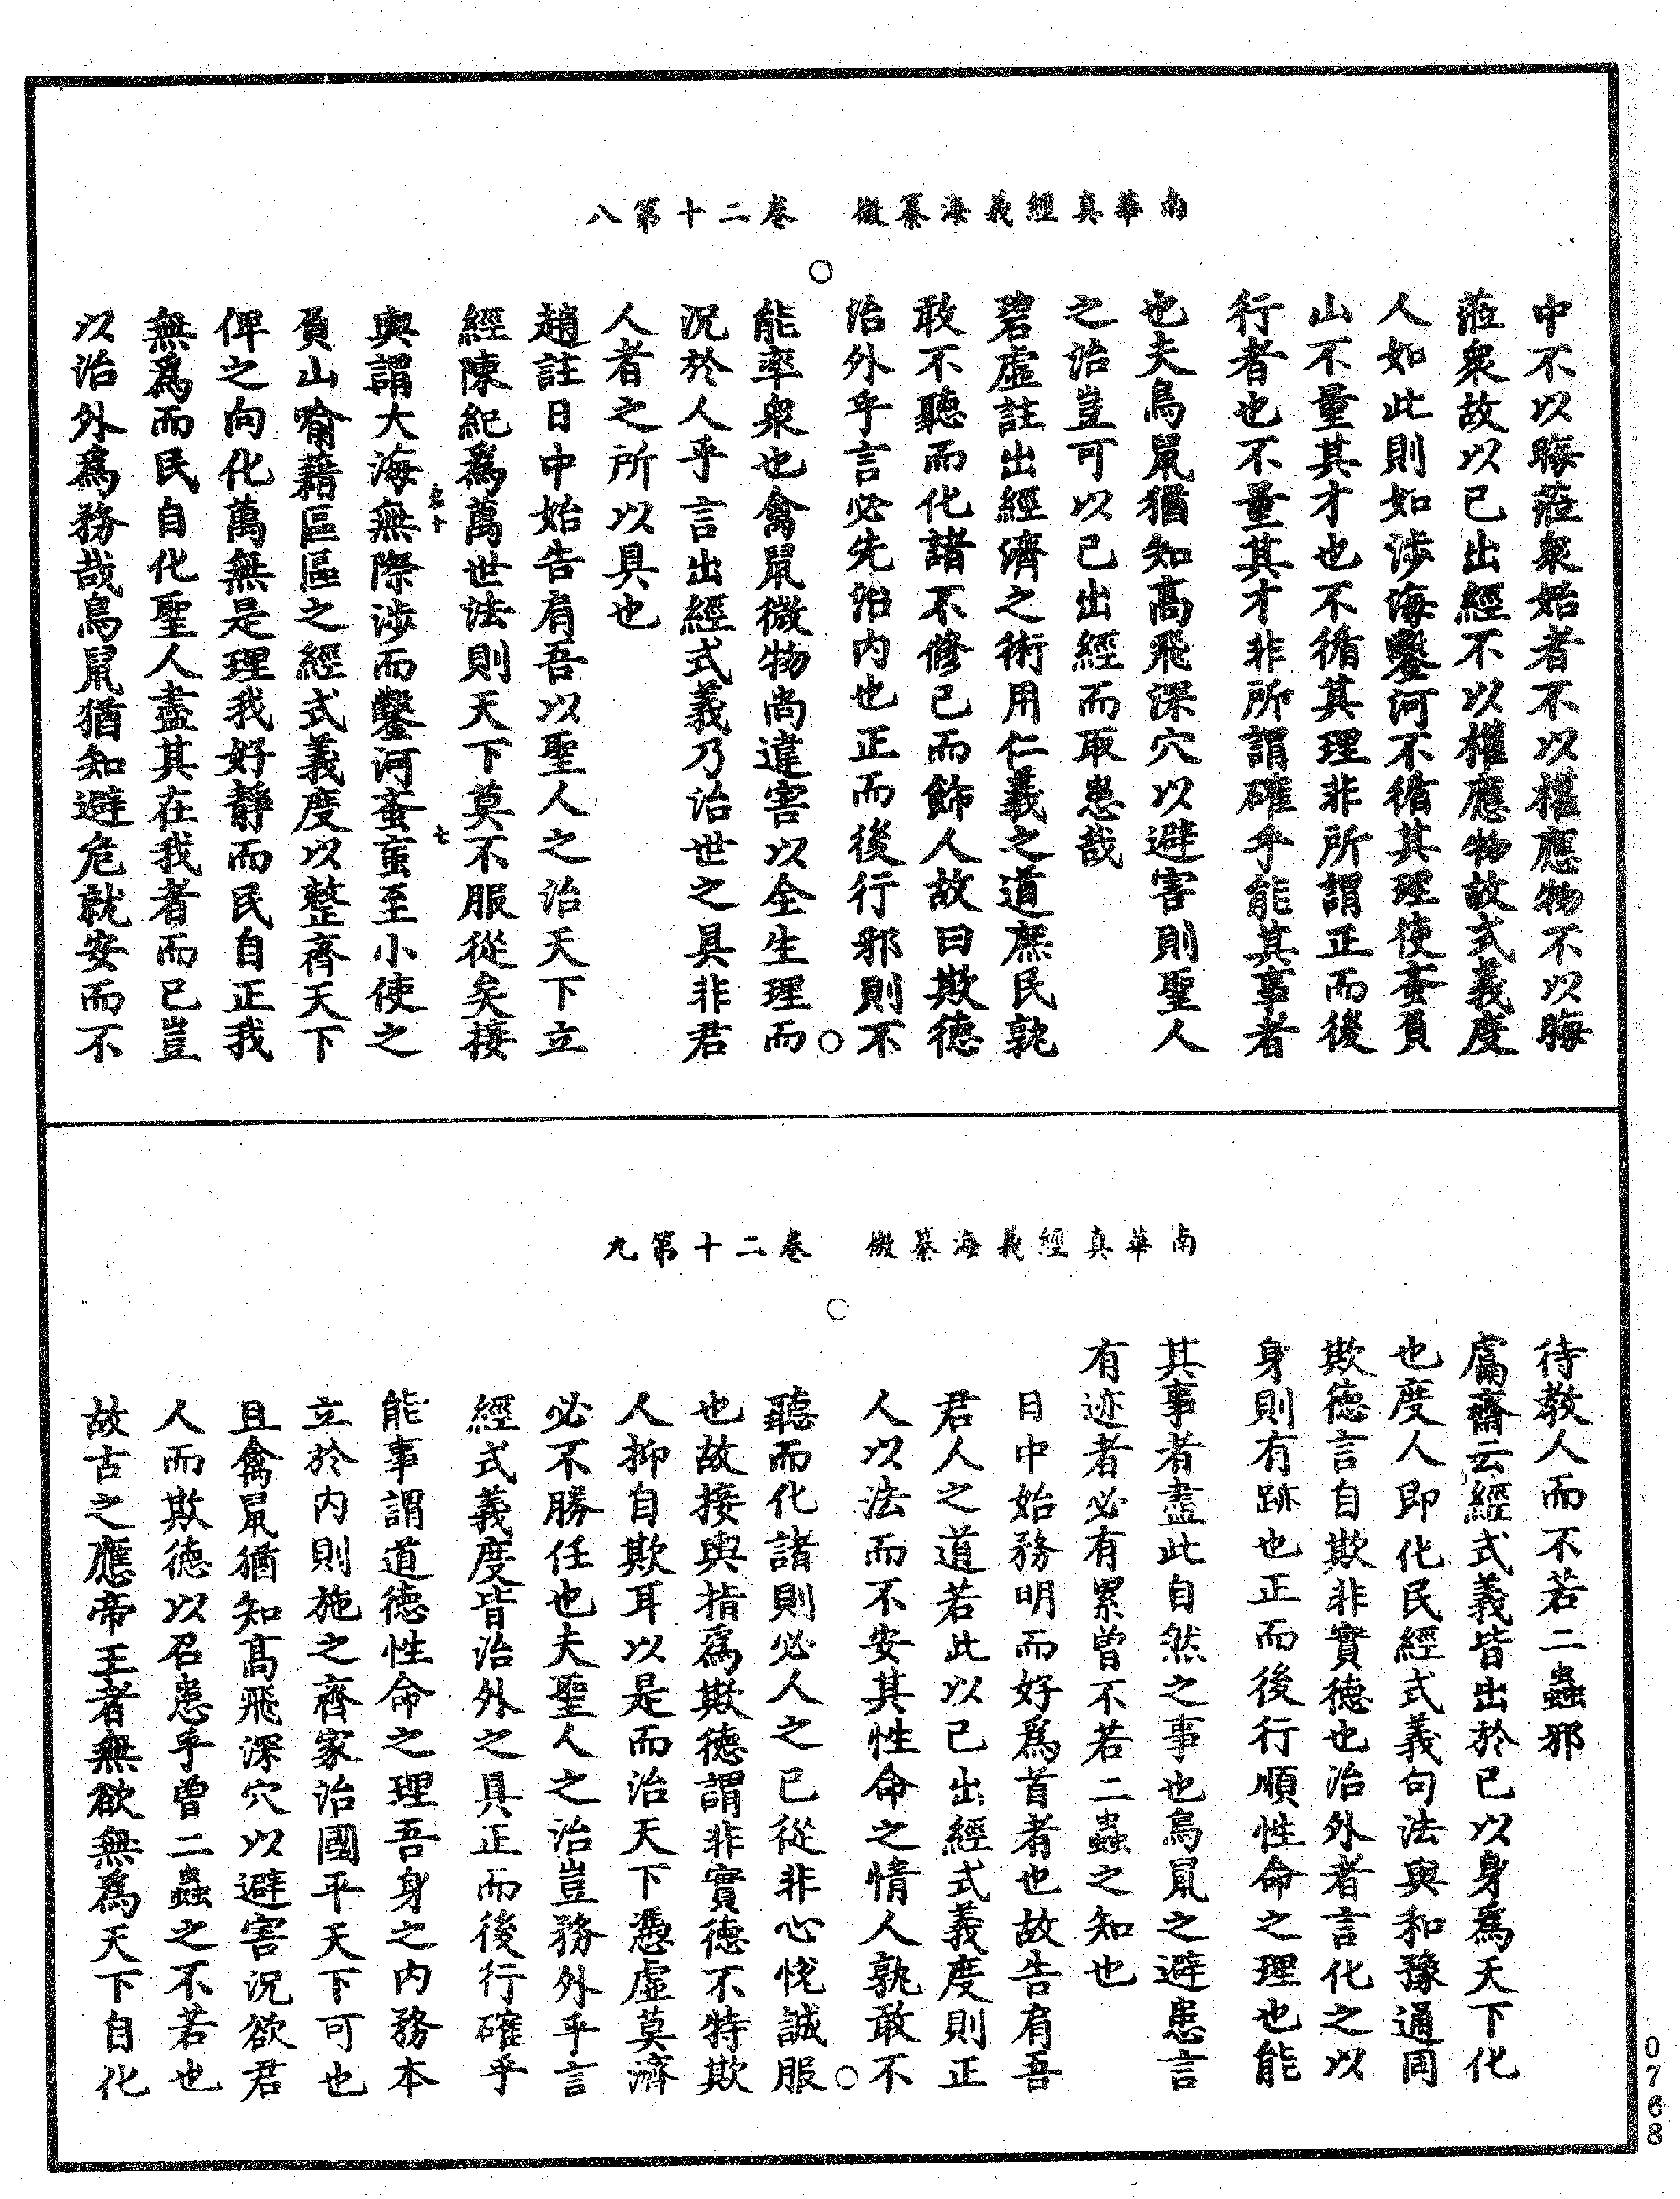 南華真經義海纂微　卷二十第八
中不以晦莅衆始者不以權應物不以晦
莅衆故以己出經不以權應物故式義度
人如此則如涉海鑿河不循其理使蚉負
山不量其才也不循其理非所謂正而後
行者也不量其才非所謂確乎能其事者
也夫鳥鼠猶知高飛深穴以避害則聖人
之治豈可以己出經而取患哉
碧虛註出經濟之術用仁義之道庶民孰
敢不聽而化諸不修己而飾人故曰欺德
治外乎言必先治内也正而後行邪則不
能率衆也禽鼠微物尚違害以全生理而
況於人乎言出經式義乃治世之具非君
人者之所以具也
趙註日中始告肩吾以聖人之治天下立
經陳紀爲萬世法則天下莫不服從矣接
輿謂大海無際涉而鑿河蚉䖟至小使之
負山喻藉區區之經式義度以整齊天下
俾之向化萬無是理我好靜而民自正我
無爲而民自化聖人盡其在我者而已豈
以治外爲務哉鳥鼠猶知避危就安而不
南華真經義海纂微　卷二十第九
待教人而不若二蟲邪
鬳齋云經式義皆出於己以身爲天下化
也度人即化民經式義句法與和豫通同
欺德言自欺非實德也治外者言化之以
身則有跡也正而後行順性命之理也能
其事者盡此自然之事也鳥鼠之避患言
有迹者必有累曾不若二蟲之知也
日中始務明而好爲首者也故告肩吾
君人之道若此以己出經式義度則正
人以法而不安其性命之情人孰敢不
聽而化諸則必人之己從非心悅誠服
也故接輿指爲欺德謂非實德不特欺
人抑自欺耳以是而治天下憑虛莫濟
必不勝任也夫聖人之治豈務外乎言
經式義度皆治外之具正而後行確乎
能事謂道德性命之理吾身之内務本
立於内則施之齊家治國平天下可也
且禽鼠猶知高飛深穴以避害況欲君
人而欺德以召患乎曾二蟲之不若也
故古之應帝王者無欲無爲天下自化
0768